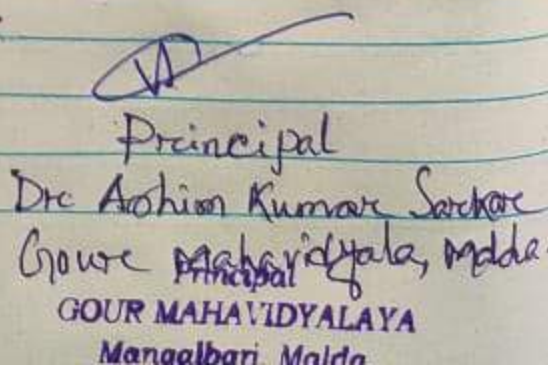 Principal
Dr Ashim Kumar Sarkar
Gour Mahavidyala, Malda.
Principal
GOUR MAHAVIDYALAYA
Mangalbari, Malda